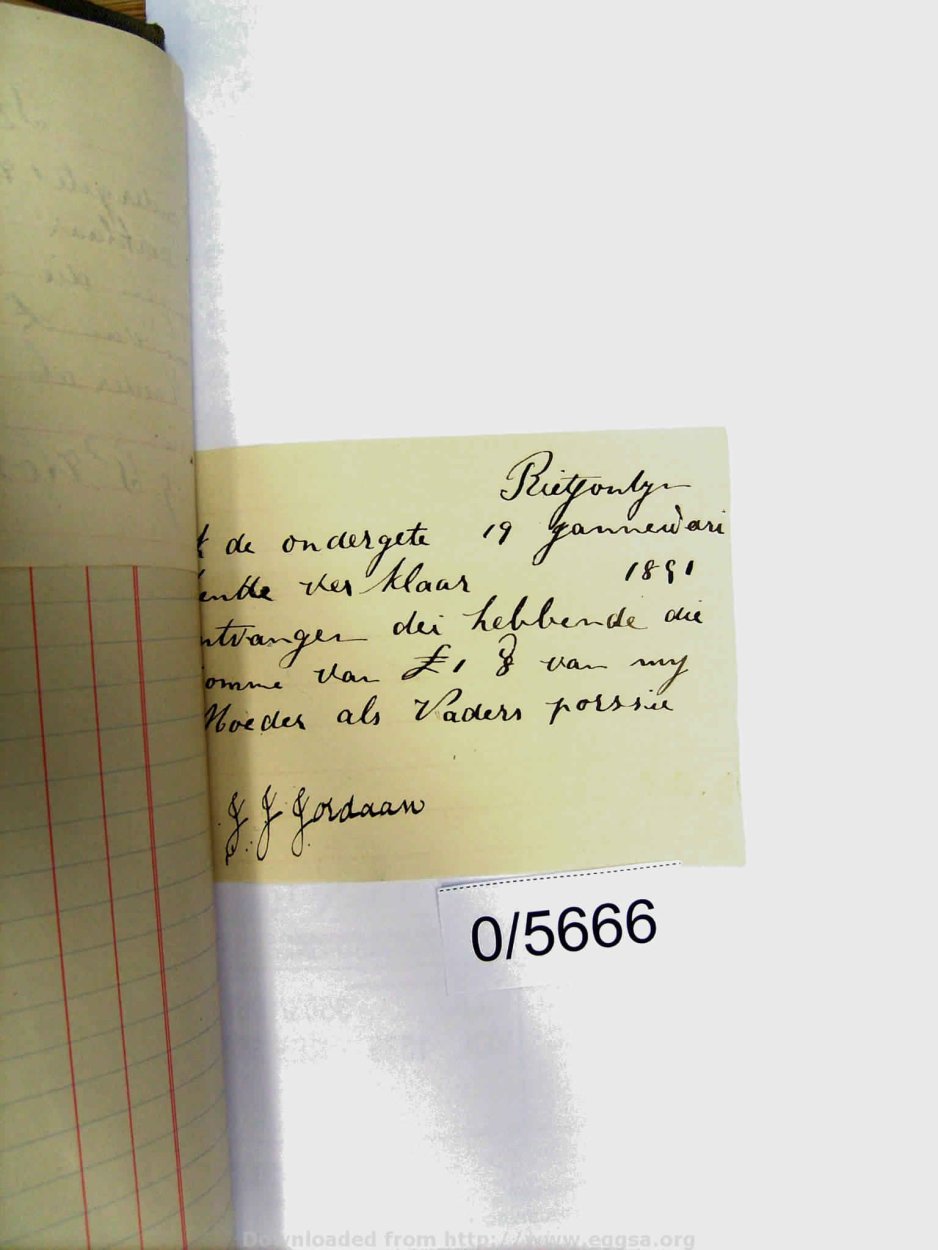 Rietfontyn
k de ondergete 19 Jannewari
ende ver klaar 1891
ntvangen dei hebbende die
omme van £1 van my
Moeder als Vaders porssie
J J Jordaan
0/5666
Downloaded from http://www.eggsa.org